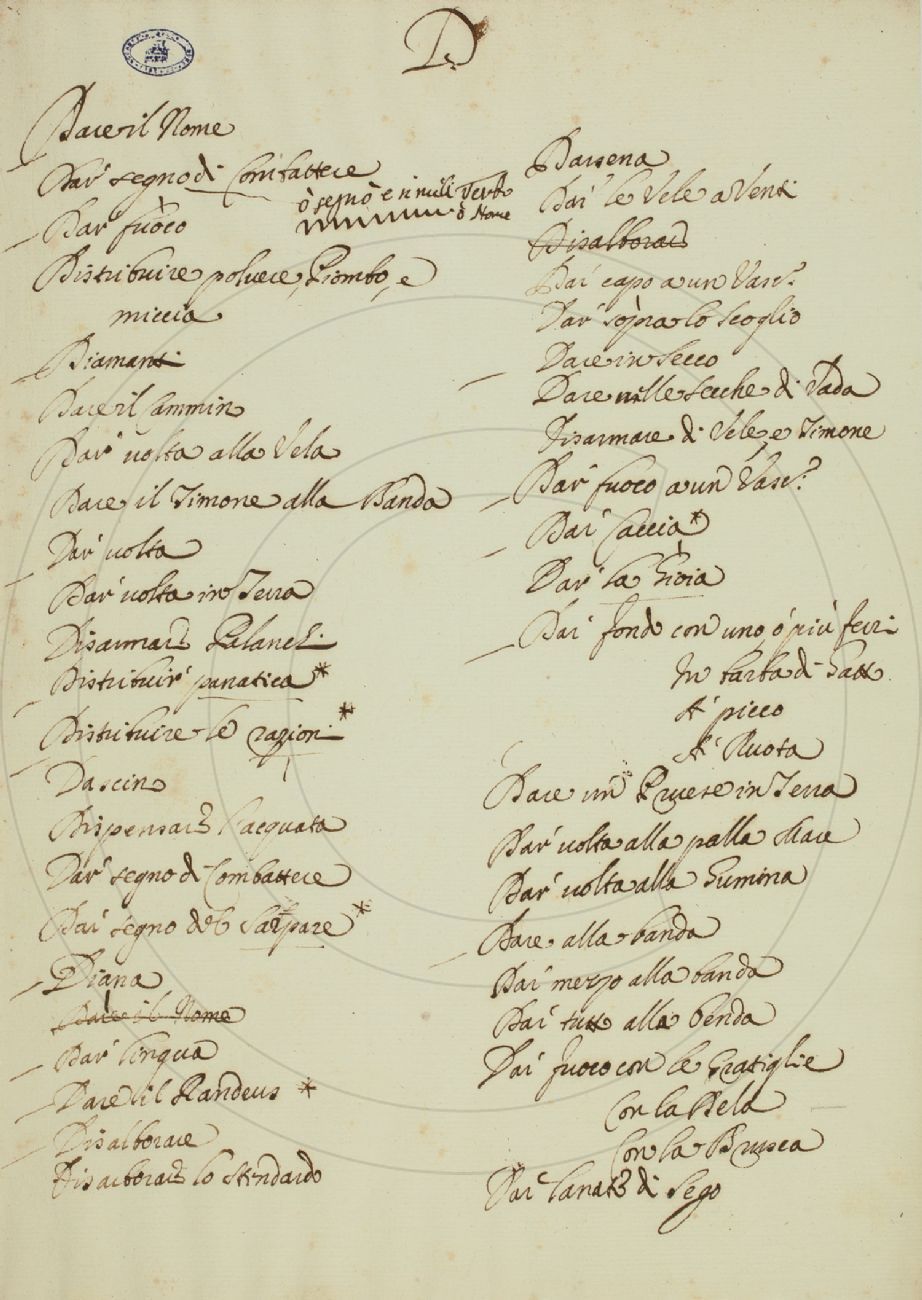 D
Dare il Nome
Dar' segno di Combattere
ò segnò e in nulli Verbo
ò Nome
Dar fuòco
Distribuire poluere, Piombo, e
miccia
Diamanti
Dare il Cammin
Dar' uolta alla Vela
Dare il Timone alla Banda
Dar' uolta
Dar' uolta in Terra
Disarmare Palanchi
Distribuir' panatica *
Distribuire le razioni *
Dascino
Dispensare l'acquata
Dar' segno di Combattere
Dar' segno del Sarpare *
Diana
Dare il Nome
Dar' lingua
Dare il Randeus *
Disalborare
Disarborare lo Stendardo
Darsena
Dar' le Vele a Venti
Disalborare
Dar' capo a un Vasc.º
Dar' sopra lo scoglio
Dare in Secco
Dare nelle secche di Vada
Disarmare di Vele, e Timone
Dar' fuoco a un Vasc.º
Dar' Caccia *
Dar' la Gioia
Dar' fondo con uno, ó più ferri
In barba di Gatto
A' picco
A' Ruota
Dare un Provese in Terra
Dar' uolta alla palla Mare
Dar' uolta alla Gumina
Dare alla banda
Dar' mezzo alla banda
Dar' tutto alla benda
Dar' fuoco con le Gratiglie
Con la Pela
Con la Brusca
Dar' la nata di Sego